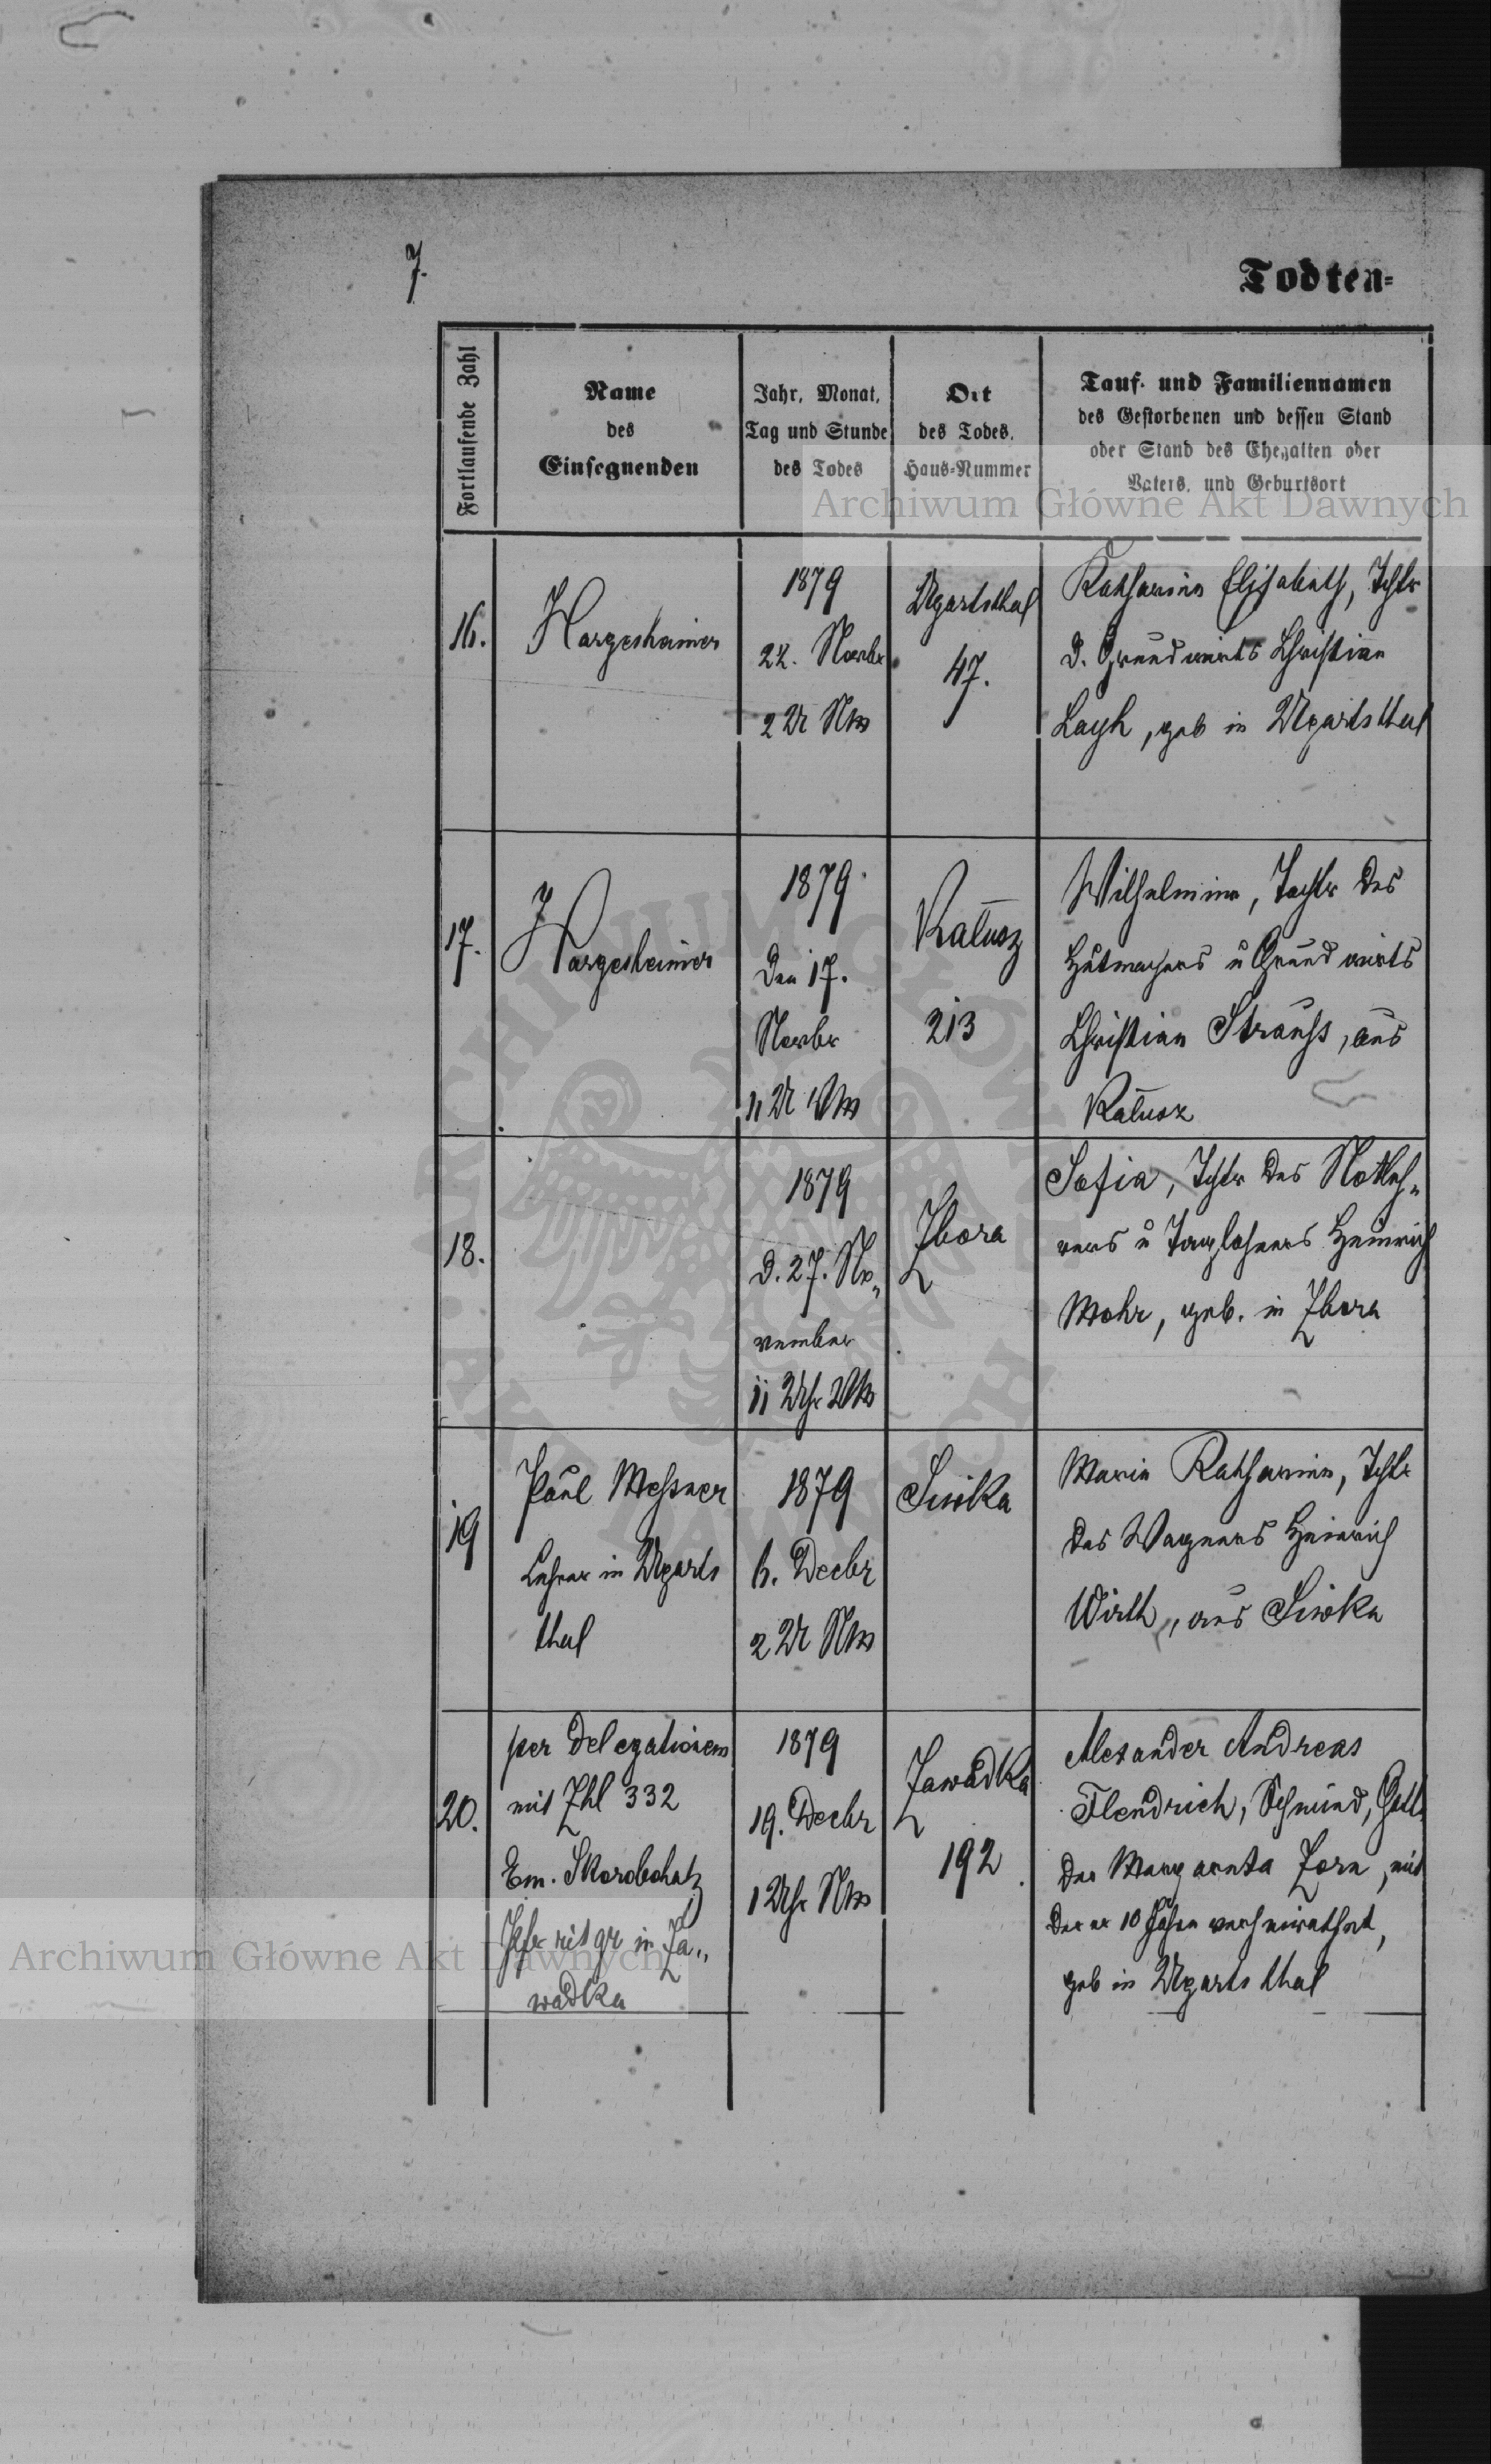 7.
Todten=
Fortlaufende Zahl
Name
des
Einsegnenden
Jahr, Monat,
Tag und Stunde
des Todes
Ort
des Todes,
Haus=Nummer
Tauf- und Familiennamen
des Gestorbenen und dessen Stand
oder Stand des Ehegatten oder
Vaters, und Geburtsort
Archiwum Główne Akt Dawnych
16.
Hargesheimer
1879
Novbr
2 U Nm
Ugartsthal
47.
Katharina Elisabeth, Tchtr
d. Grundwirts Christian
Layh, geb in Ugartsthal
17.
Hargesheimer
1879
den 17.
Novbr
11 U Vm
Kałusz
213
Wilhelmine, Tochtr des
Hutmachers u Grundwirts
Christian Strauss, aus
Kałusz
18.
1879
d. 27. No„
vember
11 Uhr
Zbora
Sofia, Tchtr des Notleh„
rers u Taglöhners Heinrich
Mohr, geb. in Zbora
19
Paul Messner
Lehrer in Ugarts
thal
1879
6. Decbr
2 U Nm
Siwka
Maria Katharina, Tchtr
des Wagners Heinrich
Wirth, aus Siwka
20.
per delegationem
mit Zhl 332
Em. Skorobohatz
rit gr in Za„
wadka
1879
19. Decbr
1 Uhr Nm
Zawadka
192
Alexander Andreas
Flendrich, Schmied,
der Margareta Zorn, mit
der er 10 Jahre verheirathet,
geb in Ugartsthal
ARCHIWUM GŁÓWNE AKT DAWNYCH
Archiwum Główne Akt Dawnych